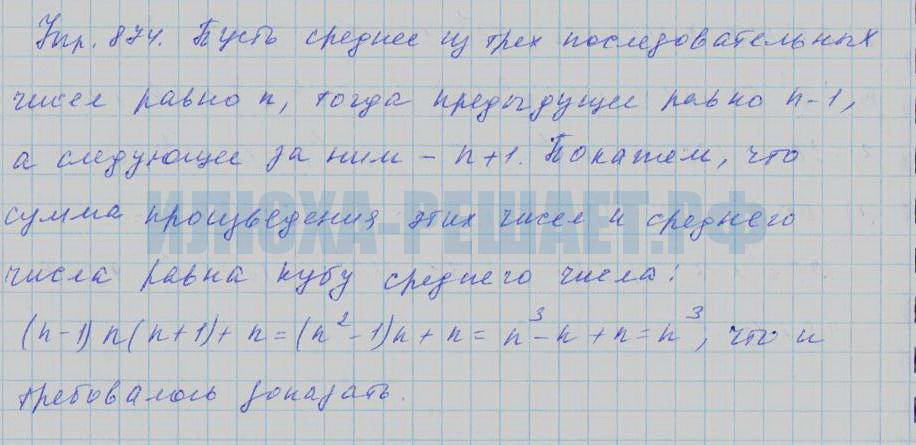 Упр. 874. Пусть среднее из трех последовательных
чисел равно n, тогда предыдущее равно n-1,
а следующее за ним - n+1. Покажем, что
ИЛЮХА-РЕШАЕТ.РФ
сумма произведения этих чисел и среднего
числа равна кубу среднего числа:
(n-1)n(n+1)+n=(n²-1)n+n=n³-n+n=n³, что и
требовалось доказать.